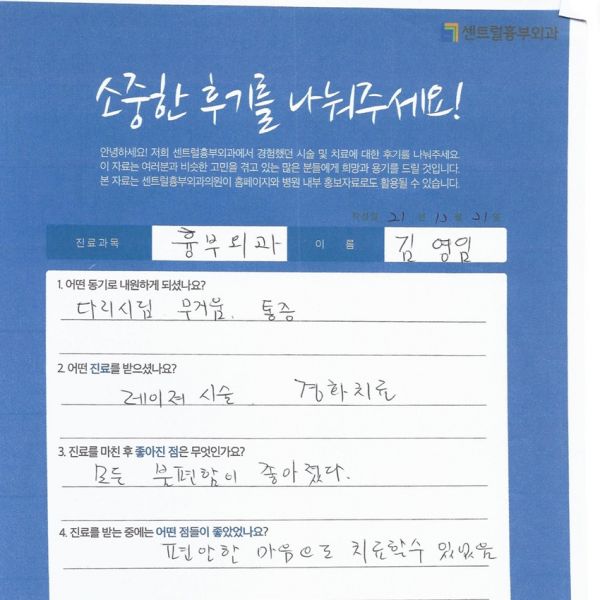 센트럴흉부외과
소중한 후기를 나눠주세요!
안녕하세요! 저희 센트럴흉부외과에서 경험했던 시술 및 치료에 대한 후기를 나눠주세요.
이 자료는 여러분과 비슷한 고민을 겪고 있는 많은 분들에게 희망과 용기를 드릴 것입니다.
본 자료는 센트럴흉부외과의원이 홈페이지와 병원 내부 홍보자료로도 활용될 수 있습니다.
작성일 21 년 10 월 21 일
진료과목 흉부외과 이 름 김영임
1. 어떤 동기로 내원하게 되셨나요?
다리시림 무거움. 통증
2. 어떤 진료를 받으셨나요?
레이저 시술. 경화치료
3. 진료를 마친 후 좋아진 점은 무엇인가요?
모든 불편함이 좋아졌다.
4. 진료를 받는 중에는 어떤 점들이 좋았었나요?
편안한 마음으로 치료할수 있었음